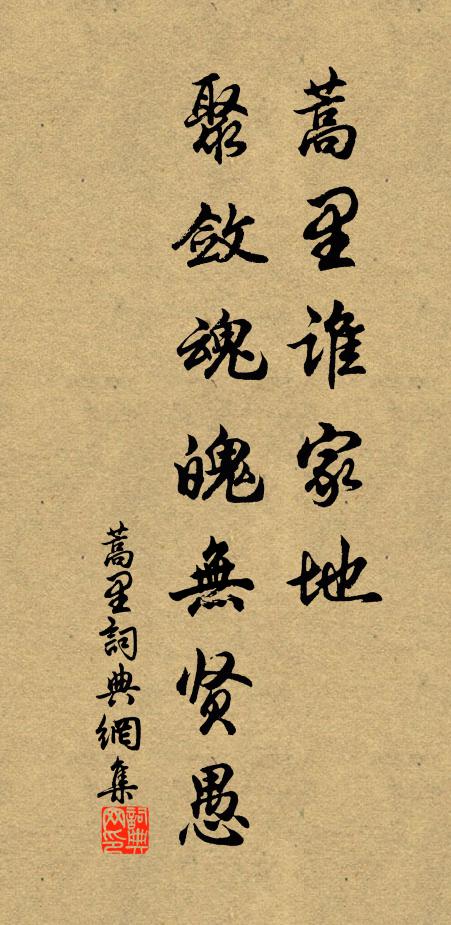 蒿里誰家地
聚斂魂魄無贤愚
蒿里詞典網集
詞典
网印